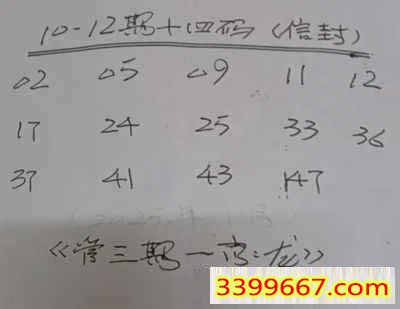 10-12期十四码（信封）
02 05 09 11 12
17 24 25 33 36
37 41 43 47
《管三期一肖:龙》
3399667.com